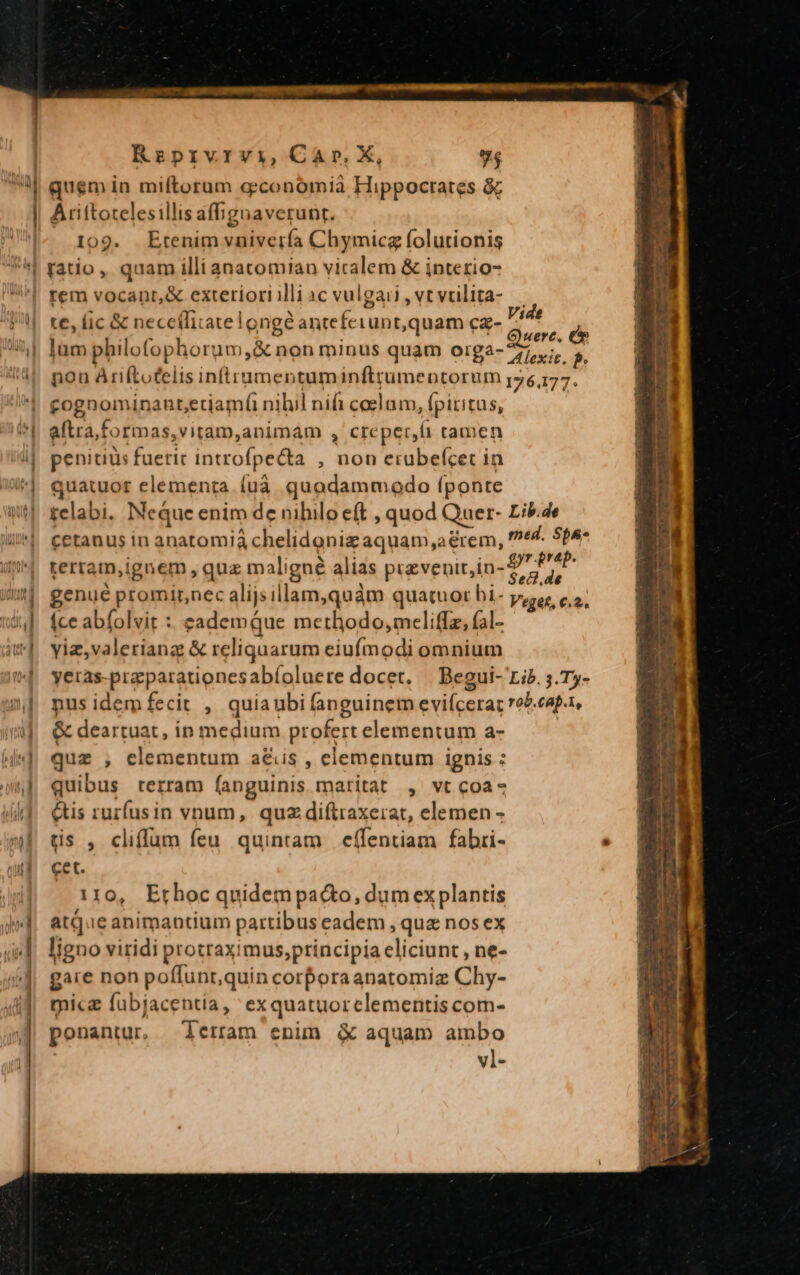 Redivivi, Cap. X, 75
quem in miſtorum œconomiâ Hippocrates &
Ariſtoteles illis aſſignaverunt.
109. Etenim vniverſa Chymicæ ſolutionis
ratio, quam illi anatomian vitalem & interio-
rem vocant, & exteriori illi ac vulgari, vt vtilita-
te, ſic & neceſſitate longè anteferunt, quam cæ-
lum philoſophorum, & non minus quàm orga-
non Ariſtotelis inſtrumentum inſtrumentorum
cognominant, etiamſi nihil niſi cœlum, ſpiritus,
aſtra, formas, vitam, animam, creper, ſi tamen
penitiùs fuerit introſpecta, non erubeſcet in
quatuor elementa ſuâ quodammodo ſponte
relabi. Neque enim de nihilo eſt, quod Quer-
cetanus in anatomiâ chelidoniæ aquam, aërem,
terram, ignem, quæ malignè alias prævenit, in-
genuè promit, nec alijs illam, quàm quatuor hi-
ſce abſolvit: eademque methodo, meliſſæ, ſal-
viæ, valerianæ & reliquarum eiuſmodi omnium
veras præparationes abſoluere docet. Begui-
nus idem fecit, quia ubi ſanguinem eviſcerat
& deartuat, in medium profert elementum a-
quæ, elementum aëris, elementum ignis:
quibus terram ſanguinis maritat, vt coa-
ctis rurſus in vnum, quæ diſtraxerat, elemen-
tis, cliſſum ſeu quintam eſſentiam fabri-
cet.
110. Et hoc quidem pacto, dum ex plantis
atque animantium partibus eadem, quæ nos ex
ligno viridi protraximus, principia eliciunt, ne-
gare non poſſunt, quin corpora anatomiæ Chy-
micæ ſubjacentia, ex quatuor elementis com-
ponantur. Terram enim & aquam ambo
vl-
Vide
Querc. &
Alexit. p.
176.177.
Lib. de
med. Spa-
gyr. præp.
Sect. de
Veget. c. 2.
Lib. 3. Ty-
rob. cap. 1,